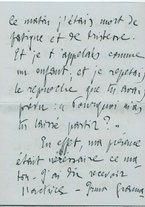 ce matin j'étais mort de
fatigue et de tristesse.
Et je t'appelais comme
un enfant, et je répétais
le reproche que tu avais
"Pourquoi m'as
tu laissé partir ?"
En effet, ma
était nécessaire ce ma
recevoir